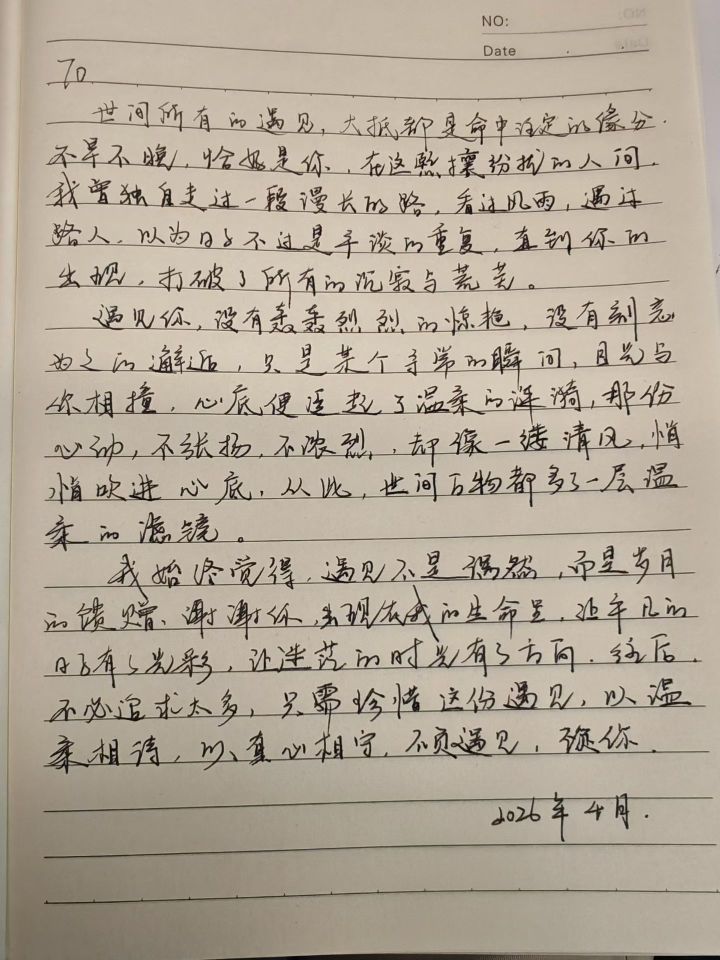 NO:
Date
To
世间所有的遇见，大抵都是命中注定的缘分.
不早不晚，恰好是你，在这熙攘纷扰的人间.
我曾独自走过一段漫长的路，看过风雨，遇过
路人，以为日子不过是平淡的重复，直到你的
出现，打破了所有的沉寂与荒芜。
遇见你，没有轰轰烈烈的惊艳，没有刻意
为之的邂逅，只是某个寻常的瞬间，目光与
你相撞，心底便泛起了温柔的涟漪，那份
心动，不张扬，不浓烈，却像一缕清风，悄
悄吹进心底，从此，世间万物都多了一层温
柔的滤镜。
我始终觉得，遇见不是偶然，而是岁月
的馈赠、谢谢你，出现在我的生命里，让平凡的
日子有了光彩，让迷茫的时光有了方向. 往后.
不必追求太多，只需珍惜这份遇见，以温
柔相待，以真心相守，不负遇见，不负你.
2026年4月.